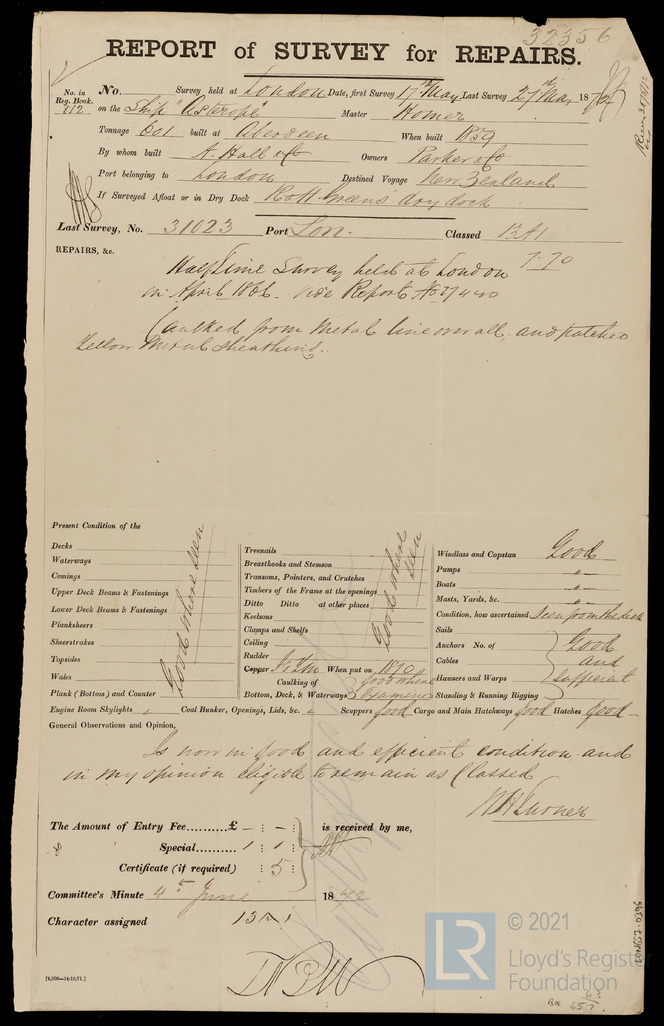 32356
REPORT of SURVEY for REPAIRS.
No. in Reg. Book. 612
No. Survey held at London Date, first Survey 17th May Last Survey 27th May 1872
on the Ship "Asterope" Master Homer
Tonnage 601 built at Aberdeen When built 1859
By whom built A. Hall & Co Owners Parker & Co
Port belonging to London Destined Voyage New Zealand
If Surveyed Afloat or in Dry Dock R & H Greens dry dock
Last Survey, No. 31023 Port Lon. Classed 13A1
REPAIRS, &c. 7-70
Half Time Survey held at London
in April 1866 - vide Report No 27440
Caulked from Metal line over all, and patched
Yellow Metal Sheathing.
Present Condition of the
Decks
Waterways
Comings
Upper Deck Beams & Fastenings
Lower Deck Beams & Fastenings
Planksheers
Sheerstrakes
Topsides
Wales
Plank (Bottom) and Counter
Good where seen
Treenails
Breasthooks and Stemson
Transoms, Pointers, and Crutches
Timbers of the Frame at the openings
Ditto Ditto at other places
Keelsons
Clamps and Shelfs
Ceiling
Rudder
Good where seen
Copper When put on 1870
Caulking of Bottom, Deck, & Waterways Good where Examined
Windlass and Capstan Good
Pumps "
Boats "
Masts, Yards, &c. "
Condition, how ascertained Seen from the deck
Sails
Anchors No. of
Cables
Hawsers and Warps
Standing & Running Rigging
Good and sufficient
Engine Room Skylights " Coal Bunker, Openings, Lids, &c. " Scuppers good Cargo and Main Hatchways good Hatches good
General Observations and Opinion,
Is now in good and efficient condition and
in my opinion eligible to remain as Classed
W H Turner
The Amount of Entry Fee..........£ - : - : - is received by me,
Special.......... 1 : 1 :
Certificate (if required) : 5
Committee's Minute 4th June 1872
Character assigned 13A1
[4,000—14/10/71.]
© 2021
LR
Lloyd's Register
Foundation